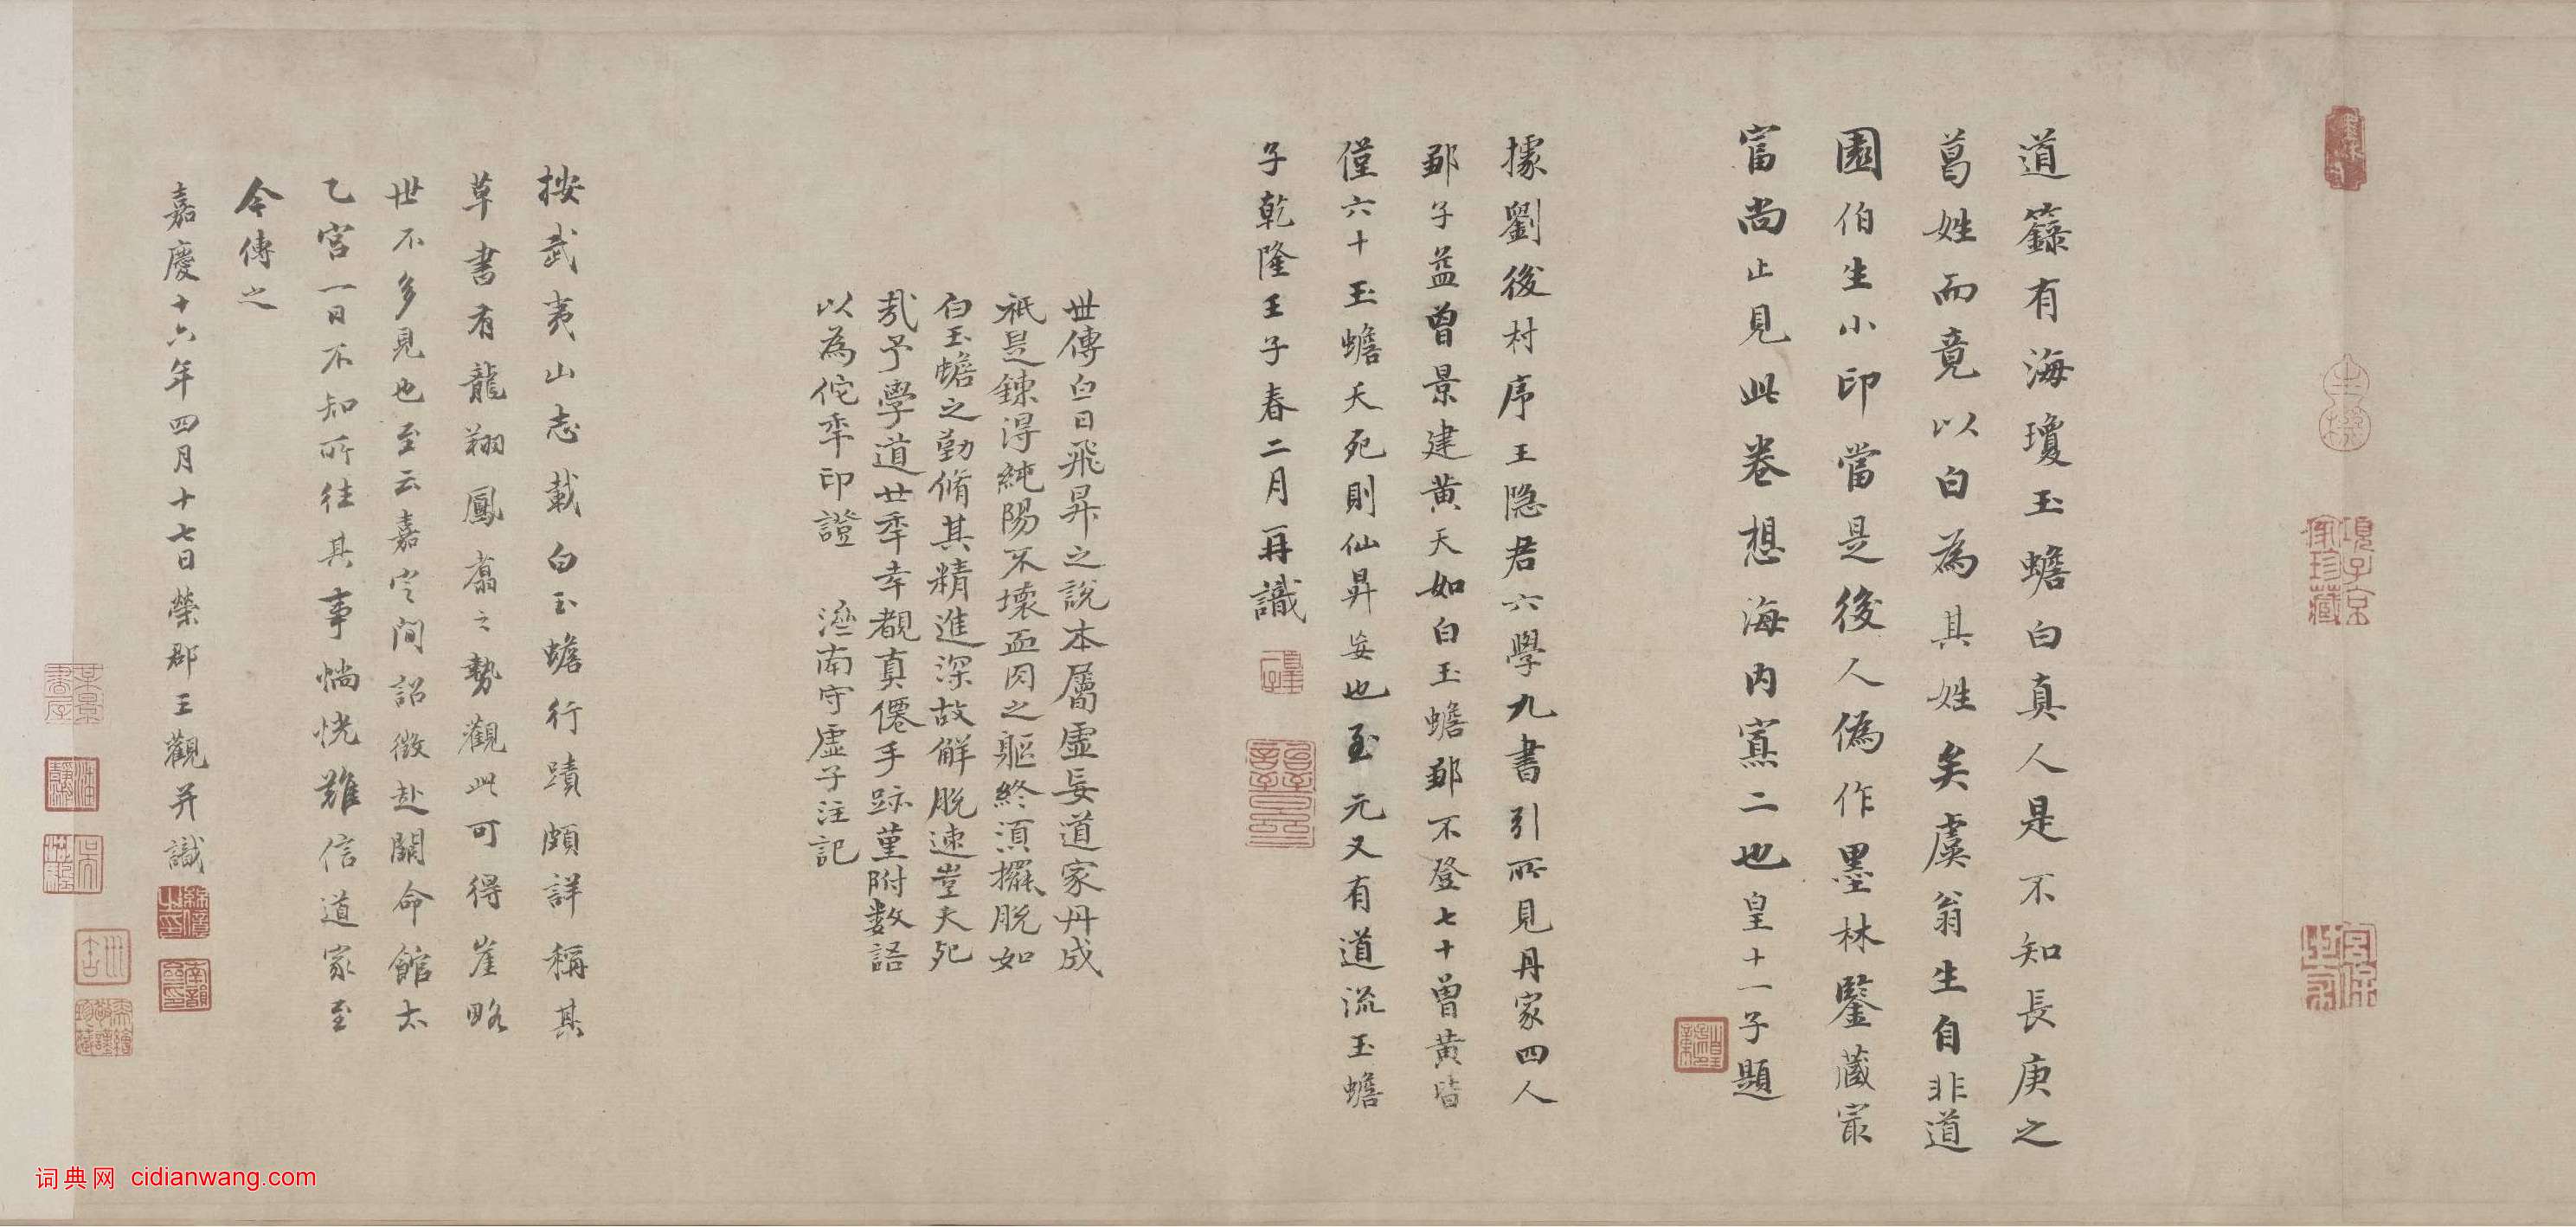 道籙有海瓊玉蟾白真人是不知長庚之
葛姓而竟以白為其姓矣虞翁生自非道
園伯生小印當是後人偽作墨林鑒藏家
富尚止見此卷想海內寡二也皇十一子題
據劉後村序王隐君六學九書引所見丹家四人
鄒子益曾景建黄天如白玉蟾鄒不登七十曾黄皆
僅六十玉蟾夭死則仙昇妄也至元又有道流玉蟾
子乾隆壬子春二月再識
世傳白日飛昇之說本屬虛妄道家丹成
祇是鍊得純陽不壞血肉之軀終須擺脫如
白玉蟾之勤脩其精進深故解脫速豈夭死
哉予學道廿年幸覩真僊手跡堇附数語
以為佗年印證 瀛南守虛子注記
按武夷山志載白玉蟾行蹟頗詳稱其
草書有龍翔鳳翥之勢觀此可得崖略
世不多見也至云嘉定間詔徵赴闕命館太
乙宮一日不知所往其事惝恍難信道家至
今傳之
嘉慶十六年四月十七日榮郡王觀并識
項子京
家珍藏
宮保
世家
词典网 cidianwang.com